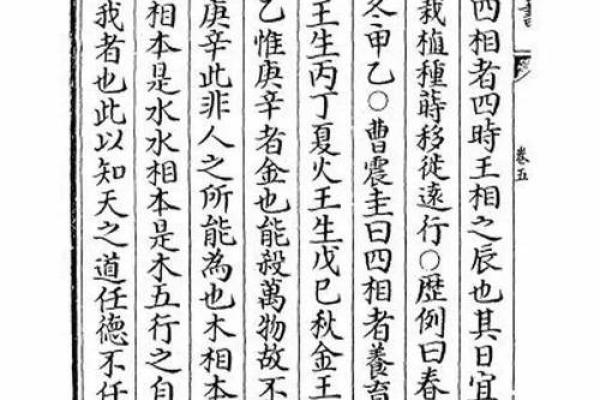 卷五
四相者四時王相之辰也其日宜
栽植種蒔移徙遠行○歴例曰春
冬甲乙○曹震圭曰四相者養育
王生丙丁夏火王生戊巳秋金王
乙惟庚辛者金也能殺萬物故不
庚辛此非人之所能為也木相本
相本是水水相本是木五行之自
我者也此以知天之道任德不任